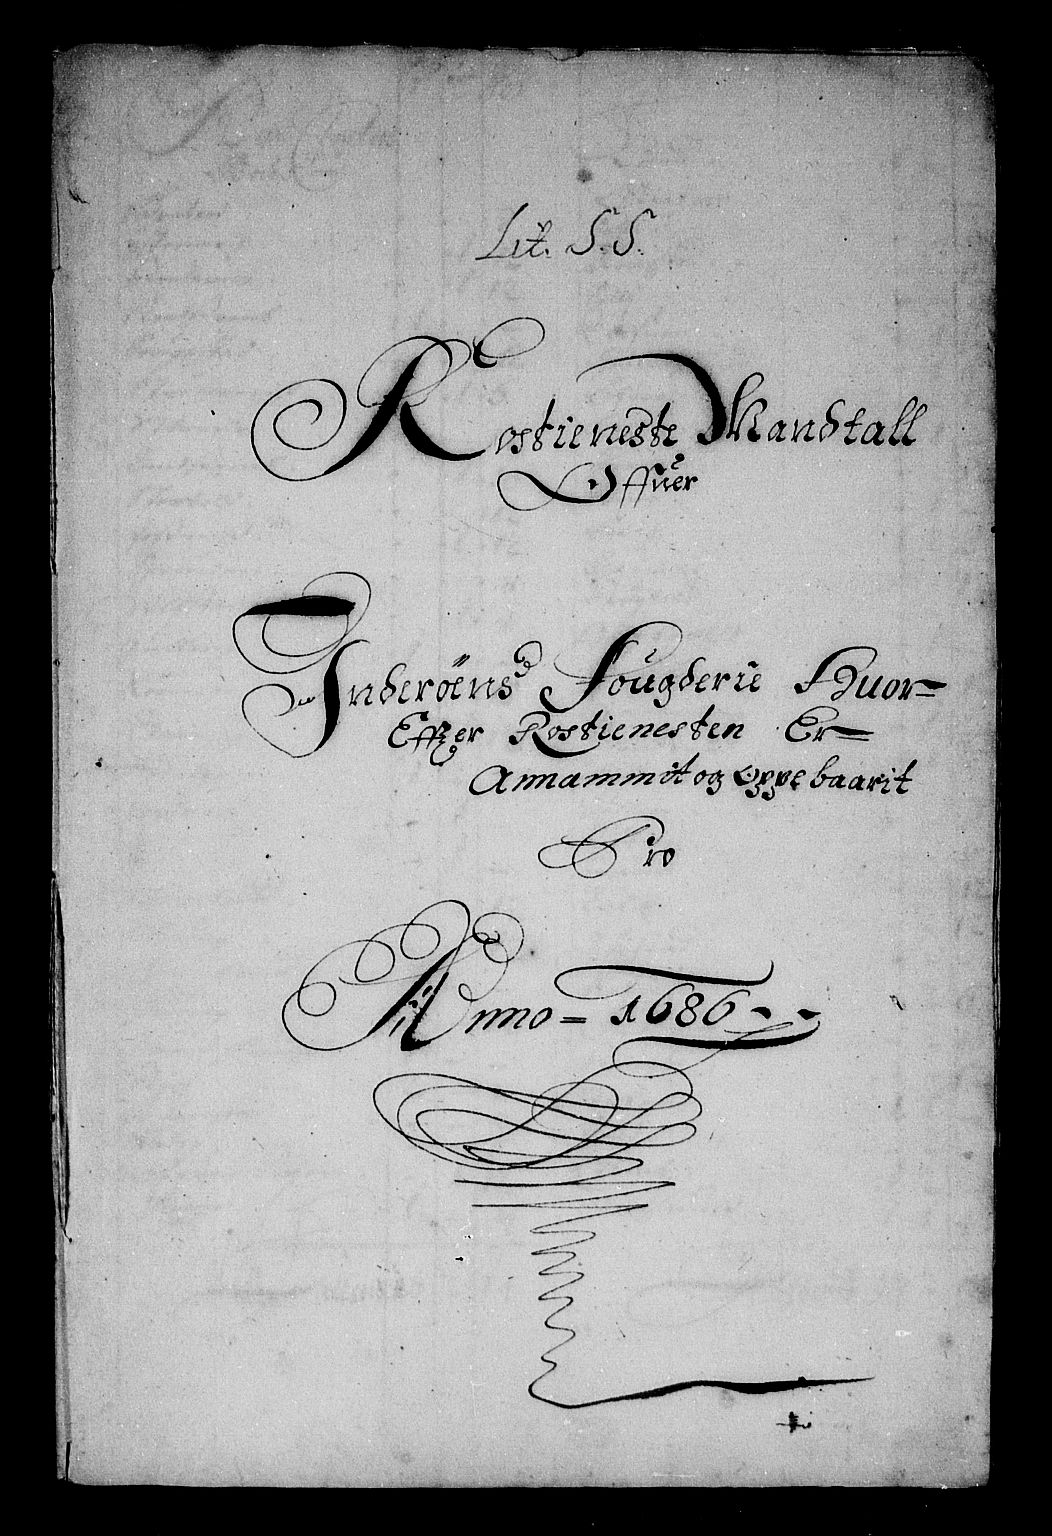 Lit. S.S.
Rostieneste Mandtall
Offuer
Inderöens Fougderie Huor=
Effter Rostienesten Er=
Annammit og Oppebaarit
Pro
Anno = 1686 - -